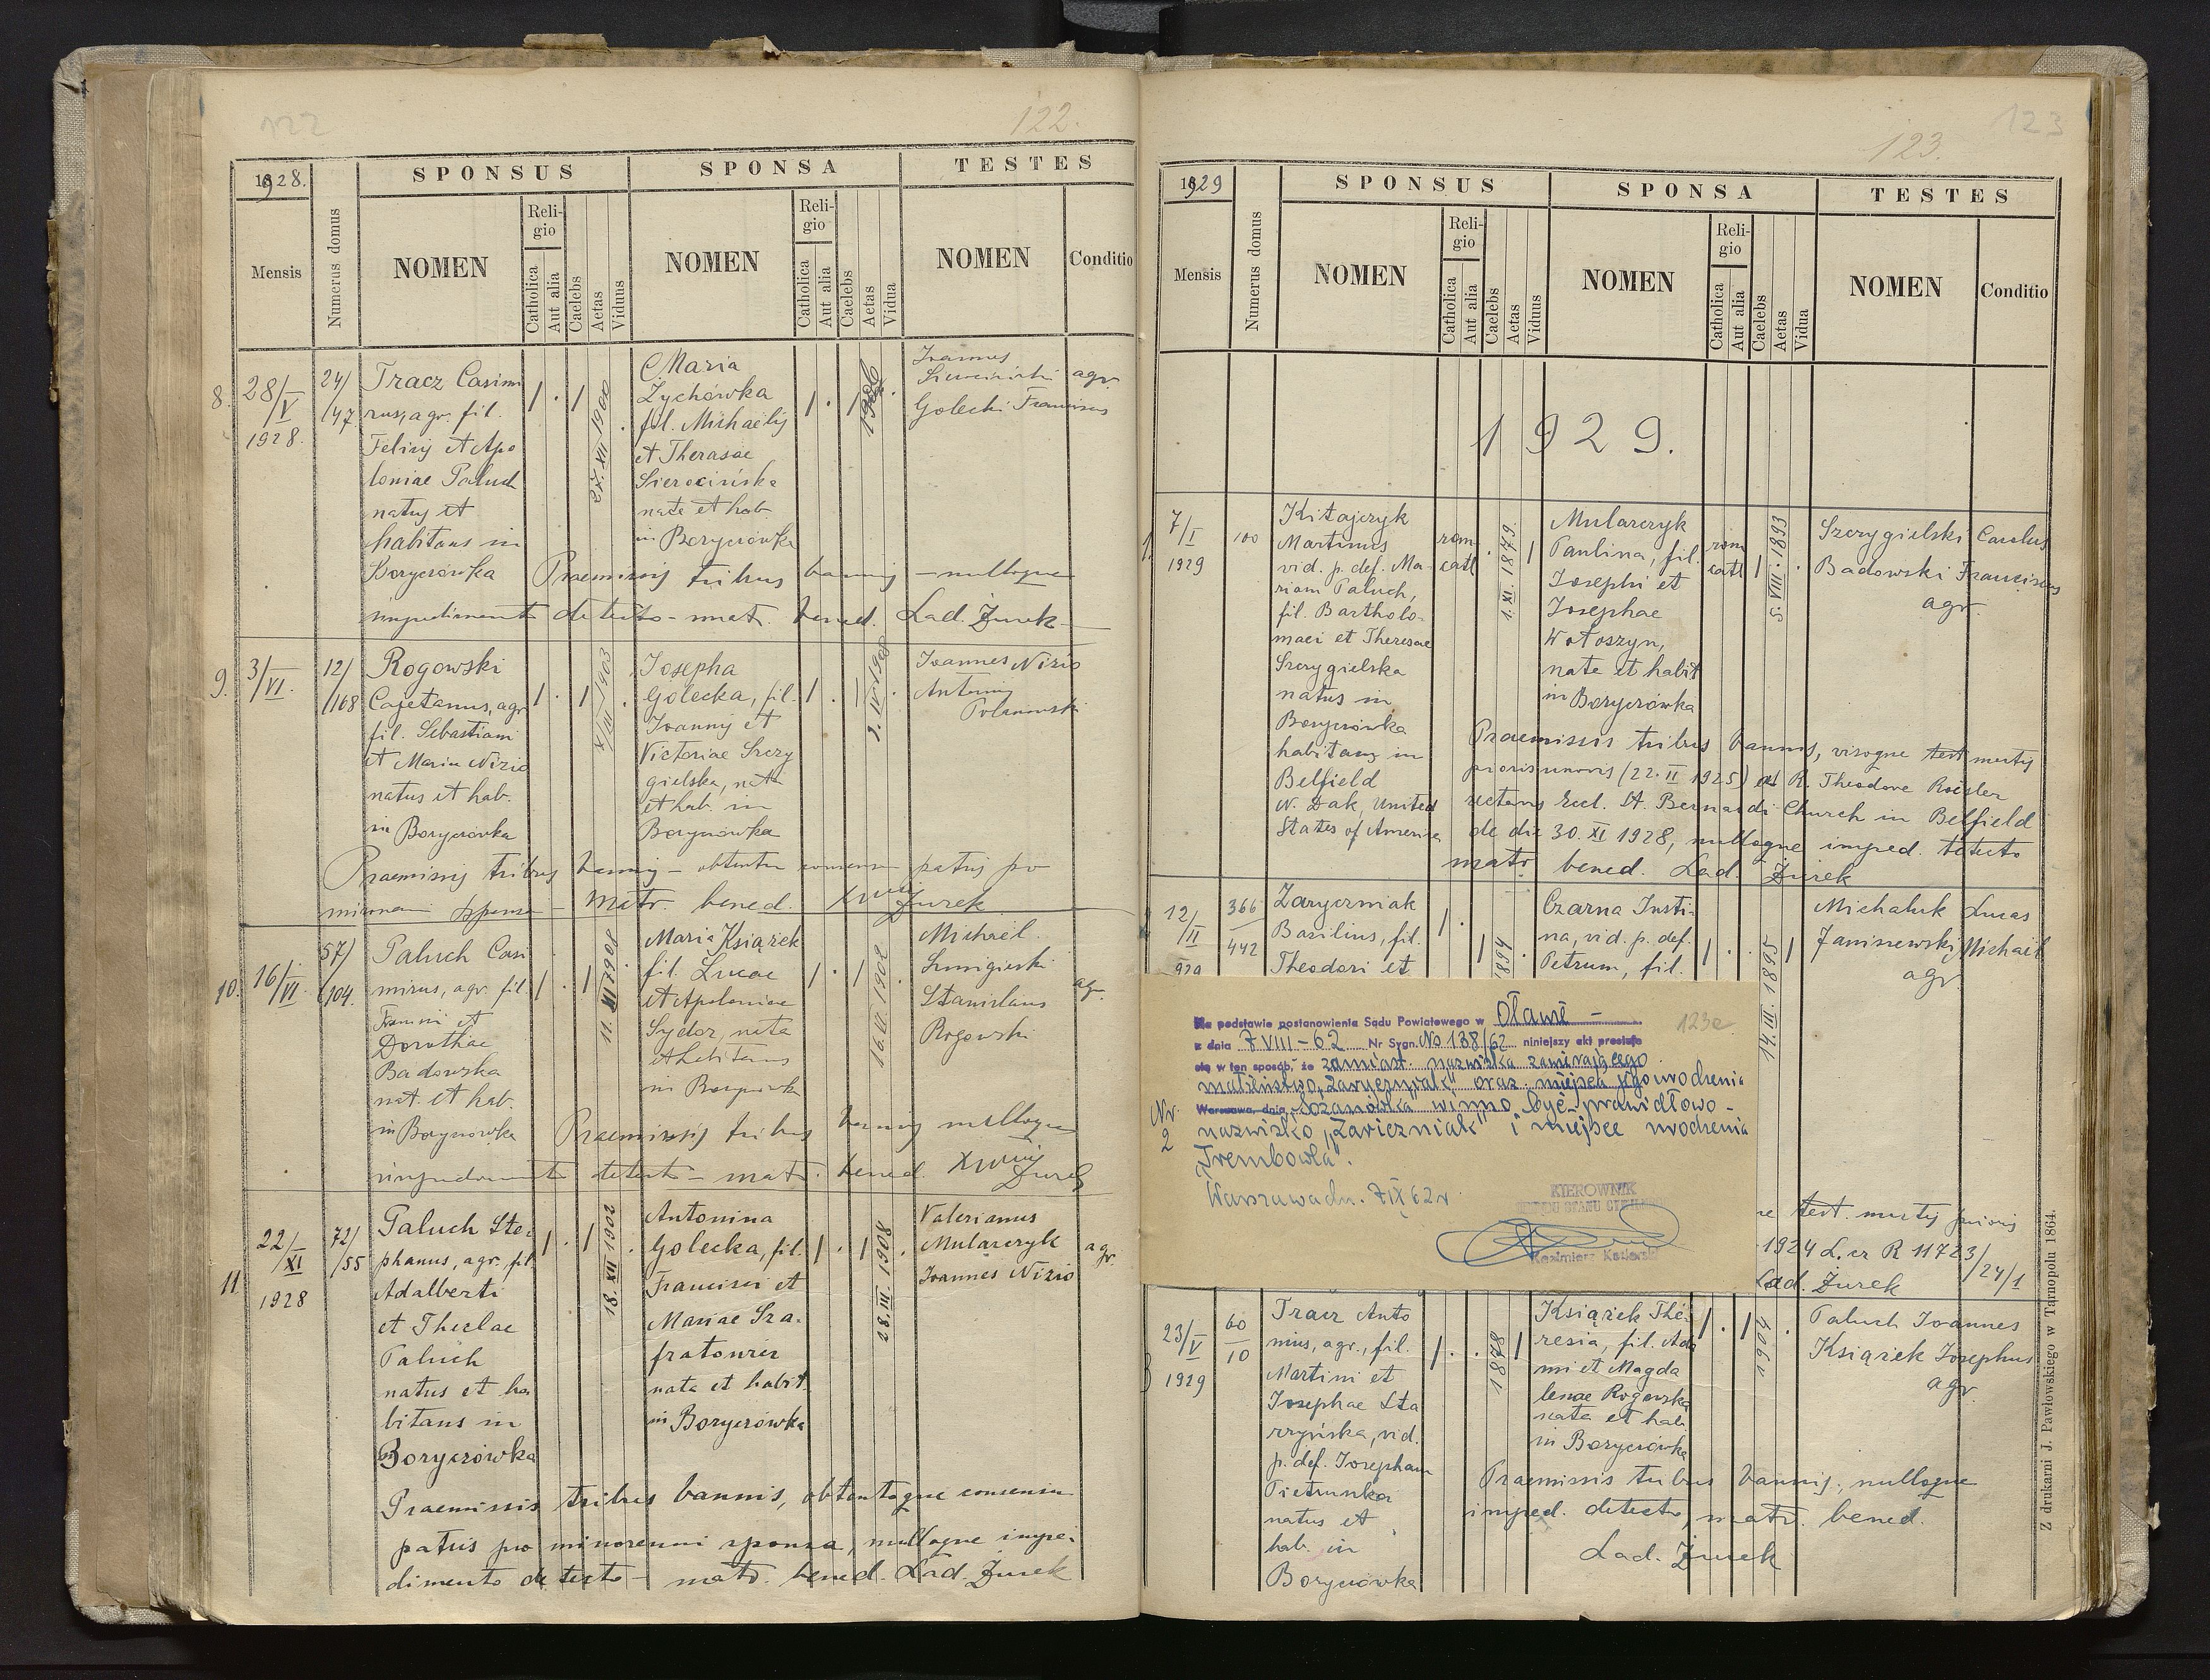 122
122.
1928.
SPONSUS
SPONSA
TESTES
Mensis
Numerus domus
NOMEN
Religio
Catholica
Aut alia
Caelebs
Aetas
Viduus
NOMEN
Religio
Catholica
Aut alia
Caelebs
Aetas
Vidua
NOMEN
Conditio
8.
28/V
1928.
24/
/47
Tracz Casimi
rus, agr. fil.
Felicis et Apo
loniae Paluch
natus et
habitans in
Borycrówka
27. XII 1900
Maria
Zychówka
fil. Michaelis
et Therasae
Sierocińska
nata et hab.
in Borycrówka
Ioannes
agr.
Golecki Franciscus
Praemissis tribus bannis nulloque
impedimento detecto - matr. bened. Lad. Żurek
9.
3/VI.
12/
/168
Rogowski
Cajetanus, agr.
fil. Sebastiani
et Maria Nizio
natus et hab.
in Borycrówka
Josepha
Golecka, fil.
Ioannis et
Victoriae Szczy
gielska, nata
et hab. in
Borycrówka
Ioannes Nizio
Antonius
Praemissis tribus bannis - obtento consensu patris pro
sponsa - matr. bened. Żurek
10.
16/VI
57/
/104.
Paluch Casi
mirus, agr. fil.
et
Dorothae
Badowska
nat. et hab.
in Borycrówka
11. XI 1908
Maria Książek
fil. Lucae
et Apoloniae
Sydor, nata
et habitans
in Borycrówk
16. VI. 1902
Michael
Stanislaus
Rogowski
agr.
Praemissis tribus bannis nulloque
impedimento detecto - matr. bened. Żurek
11
22/XI
1928
72/
/55
Paluch Ste-
phanus, agr., fil.
Adalberti
et Theclae
Paluch
natus et ha
bitans in
Borycrówka
18. XII 1902
Antonina
Golecka, fil.
Francisci et
Mariae Sza-
nata et habit.
in Borycrówka
28. III. 1908
Valerianus
Mularczyk
Ioannes Nizio
agr.
Praemissis tribus bannis, obtentoque consensu
patris pro minorenni sponsa, nulloque impe-
dimento detecto - matr. bened. Lad. Żurek
123
123.
1929
SPONSUS
SPONSA
TESTES
Mensis
Numerus domus
NOMEN
Religio
Catholica
Aut alia
Caelebs
Aetas
Viduus
NOMEN
Religio
Catholica
Aut alia
Caelebs
Aetas
Vidua
NOMEN
Conditio
1929.
1.
7/I
1929
100
Kitajczyk
Martinus
vid. p. def. Ma-
riam Paluch,
fil. Bartholo-
maei et Theresae
Szczygielska
natus in
Borycrówka
habitans in
Belfield
N. Dak, United
States of America
rom
catl
1. XI. 1879.
Mularczyk
Paulina, fil.
Josephi et
Josephae
Wołoszyn,
nata et habit
in Borycrówka
rom
catl
5. VIII. 1893
Szczygielski Carolus
Badowski Franciscus
agr.
Praemissis tribus bannis, visoque test mortis
prioris uxoris (22. II 1925) a R. Theodore
rectoris Eccl. St. Bernardi Church in Belfield
de die 30. XI 1928, nulloque imped. detecto
matr. bened. Lad. Żurek
12/II
929
366
442
Zaryczniak
Basilius, fil.
Theodori et
1894
Czarna Justi-
na, vid. p. def.
Petrum, fil.
14. III. 1895
Michaluk Lucas
Janiszewski Michael
agr.
123a
Na podstawie postanowienia Sądu Powiatowego w Oławie -
z dnia 7 VIII - 62 Nr Sygn. No 138/62 niniejszy akt prostuje
się w ten sposób, że zamiast nazwiska zawierającego
małżeństwo, "Zaryczniak" oraz miejsca jego urodzenia
Warszawa, dnia "Sozanówka" winno być prawidłowo -
nazwisko "Zariczniak" i miejsce urodzenia
Trembowla".
Nr.
2
Warszawa dn. 7 IX 62 r
KIEROWNIK
URZĘDU STANU CYWILNEGO
Kazimierz
test. mortis prioris
1924 L. ex R 11723/
/24/1
Lad. Żurek
3
23/V
1929
60
10
Tracz Anto
nius, agr., fil.
Martini et
Josephae Sta
rzyńska, vid.
p. def. Josepham
Pietruszka
natus et
hab. in
Borycrówka
1878
Książek The-
resia, fil. Ada
mi et Magda
lenae Rogowska
nata et hab.
in Borycrówka
1904
Paluch Ioannes
Książek Josephus
agr.
Praemissis tribus bannis, nulloque
imped. detecto, matr. bened.
Lad. Żurek
Z drukarni J. Pawłowskiego w Tarnopolu 1864.